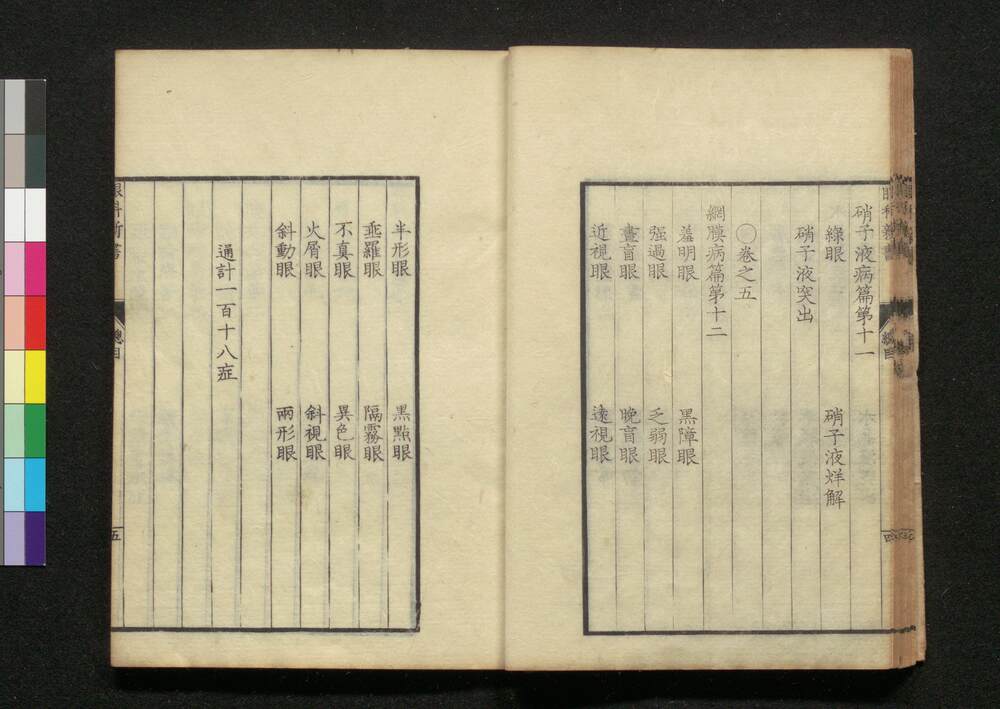 硝子液病篇第十一
綠眼　硝子液烊解
硝子液突出
〇卷之五
網膜病篇第十二
羞明眼　黑障眼
强過眼　乏弱眼
晝盲眼　晚盲眼
近視眼　遠視眼
半形眼　黑點眼
亜羅眼　隔霧眼
不真眼　異色眼
火屑眼　斜視眼
斜動眼　兩形眼
通計一百十八症
眼科新書
總目
五